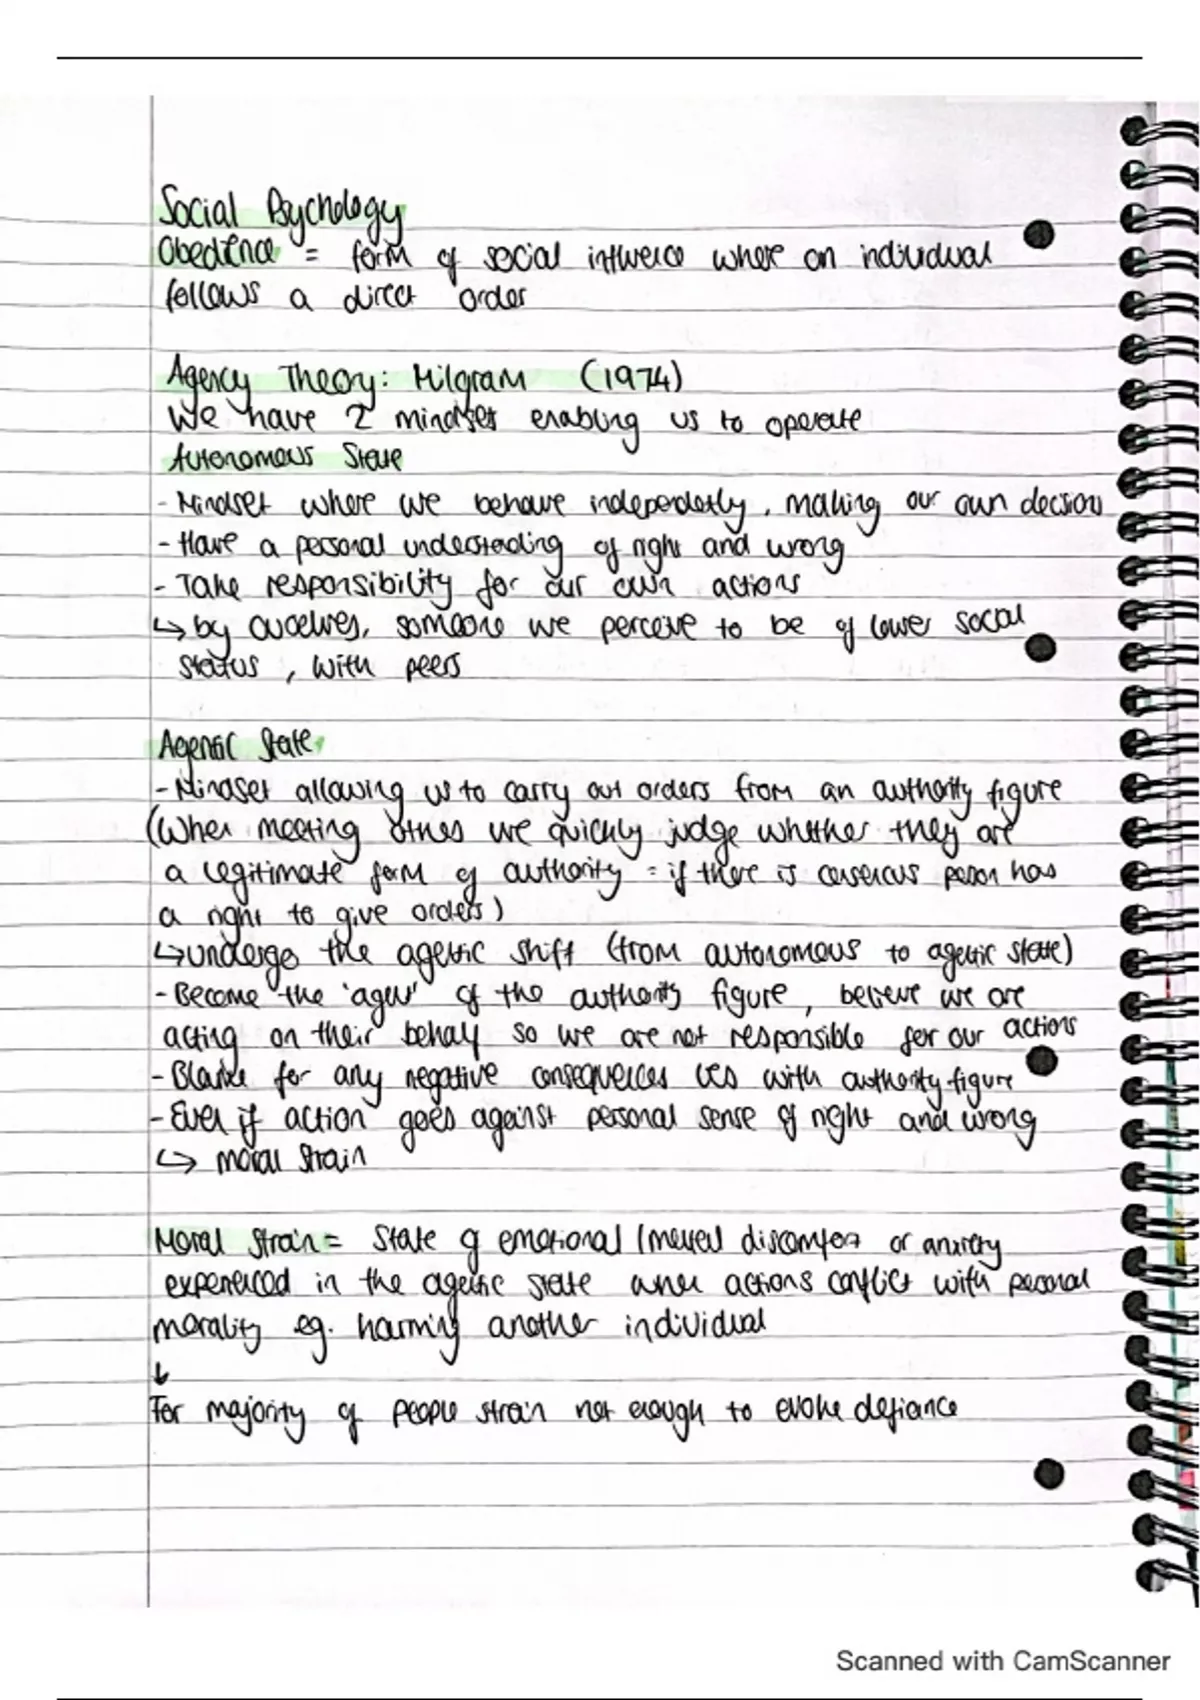 Social Psychology
Obedience = form of social influence where an individual
follows a direct order
Agency Theory: Milgram (1974)
We have 2 mindset enabling us to operate
Autonomous State
- Mindset where we behave independently, making our own decisions
- Have a personal understanding of right and wrong
- Take responsibility for our own actions
↳ by ourselves, someone we perceive to be of lower social
status, with peers
Agentic State
- Mindset allowing us to carry out orders from an authority figure
(When meeting others we quickly judge whether they are
a legitimate form of authority = if there is consensus person has
a right to give orders)
↳ undergo the agentic shift (from autonomous to agentic state)
- Become the 'agent' of the authority figure, believe we are
acting on their behalf so we are not responsible for our actions
- Blame for any negative consequences lies with authority figure
- Even if action goes against personal sense of right and wrong
↳ moral strain
Moral Strain = State of emotional/mental discomfort or anxiety
experienced in the agentic state when actions conflict with personal
morality eg. harming another individual
↓
For majority of people strain not enough to evoke defiance
Scanned with CamScanner